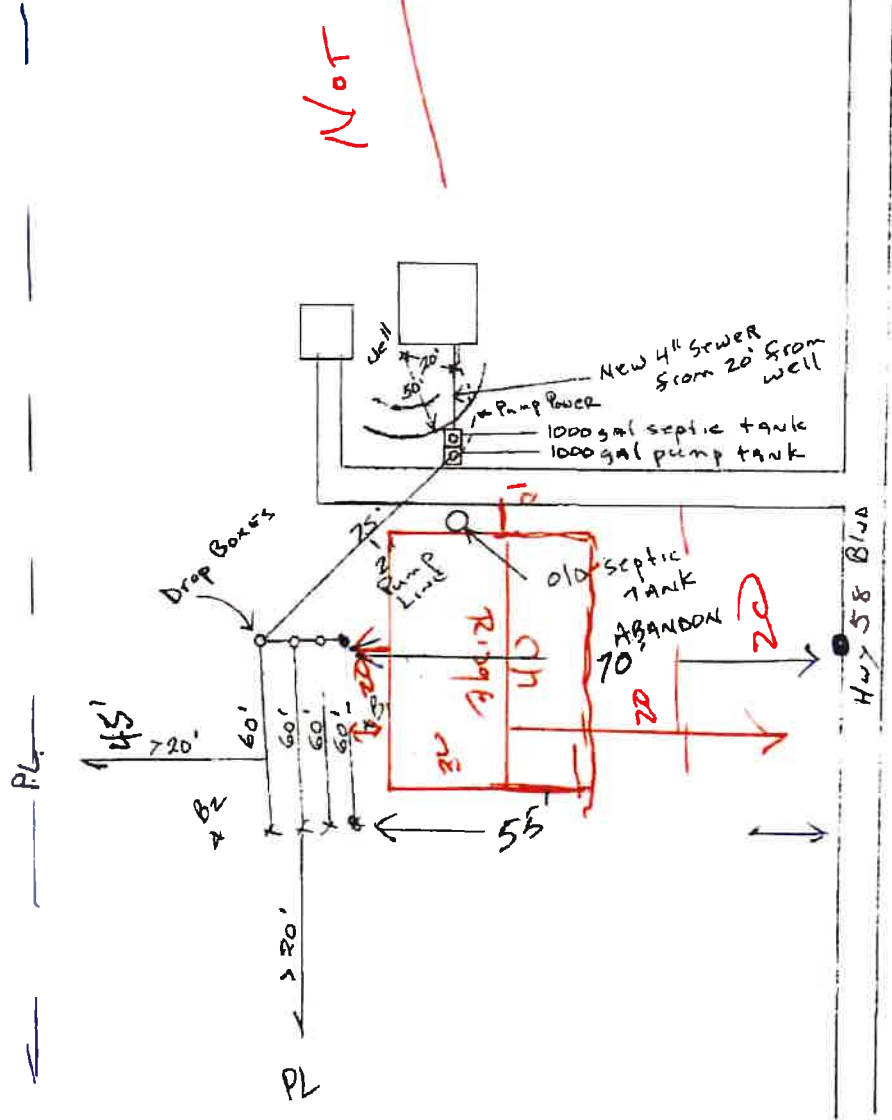 NOT
PL
well
20'
50'
New 4" Sewer
from 20' from
well
Pump Power
1000 gal septic tank
1000 gal pump tank
Drop Boxes
75'
2"
Pump
Line
old septic
TANK
ABANDON
70'
Ridge
20
20
20
Hwy 58 Blvd
45'
>20'
60'
60'
60'
60'
B1
B2
55'
>20'
PL